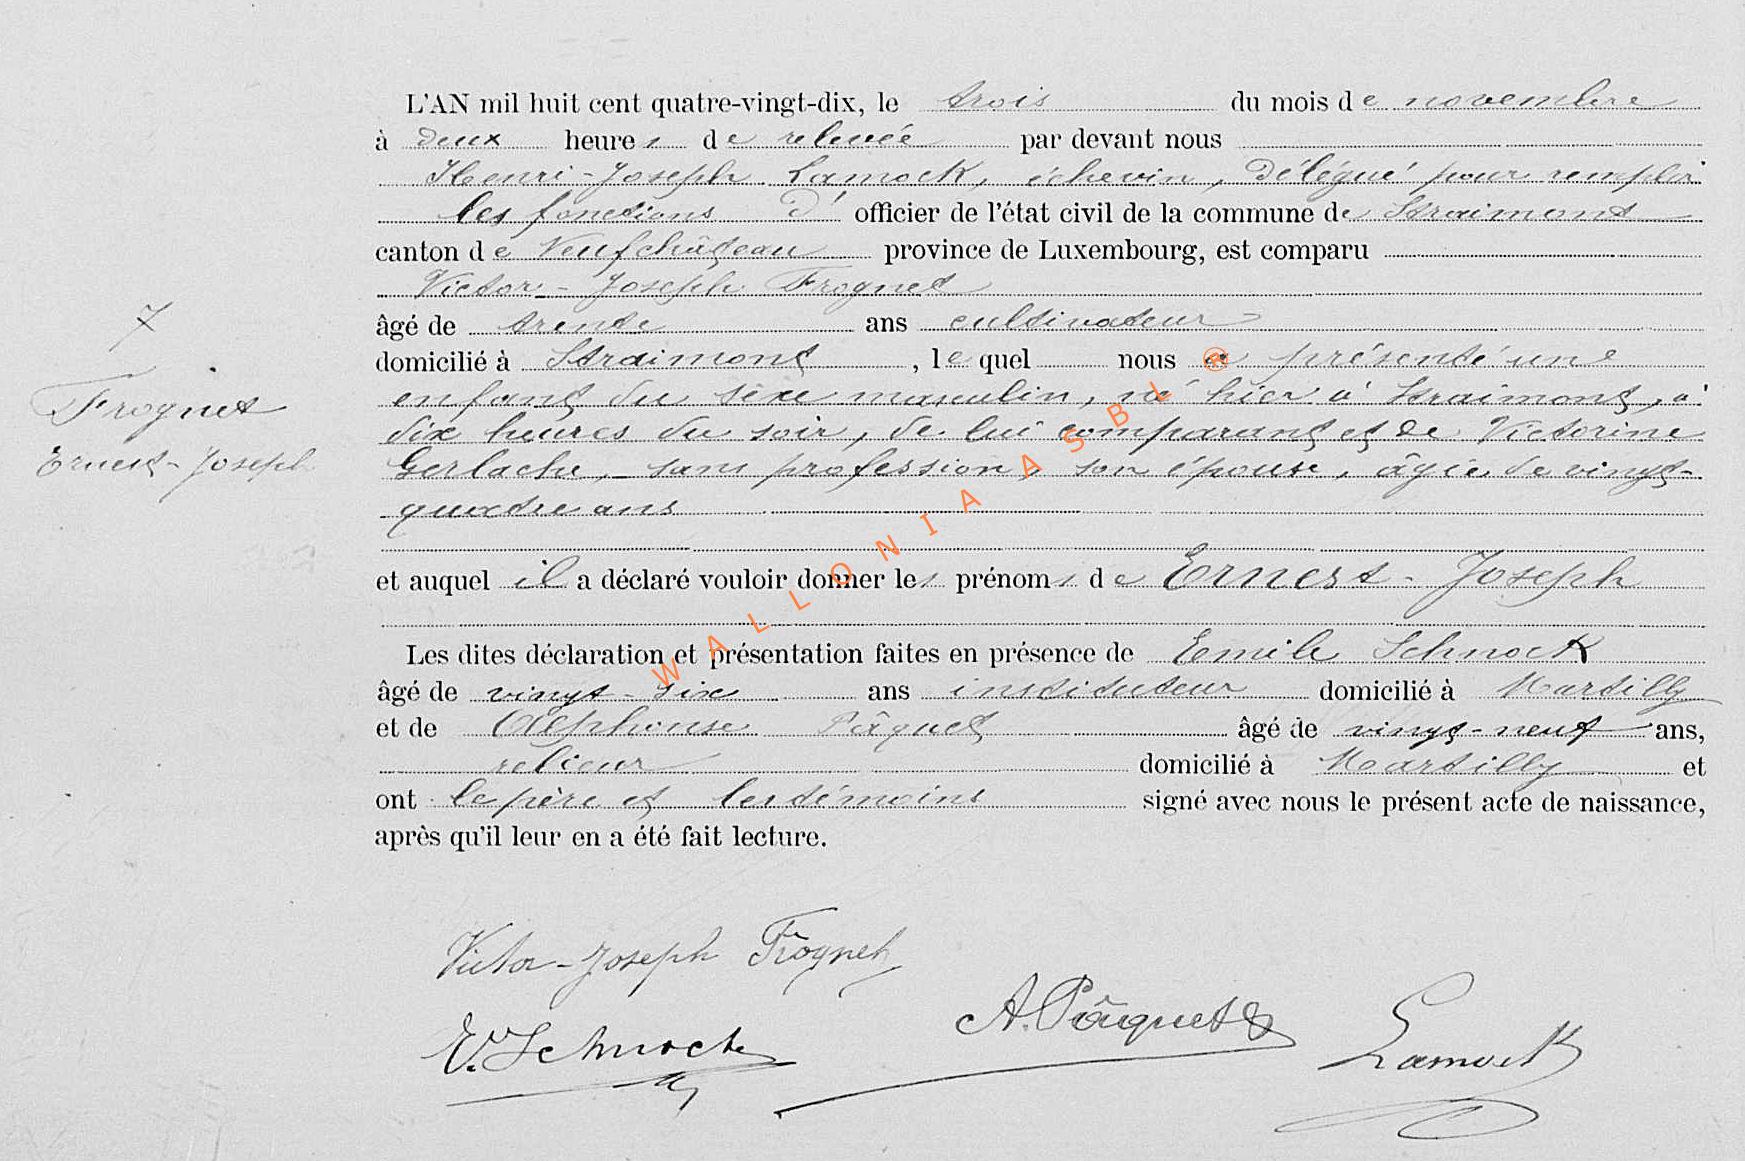 L'AN mil huit cent quatre-vingt-dix, le trois du mois de novembre
à deux heures de relevée par devant nous
Henri-Joseph Lamock, échevin, délégué pour remplir
les fonctions d' officier de l'état civil de la commune de Straimont
canton de Neufchâteau province de Luxembourg, est comparu
Victor-Joseph Frognet
âgé de trente ans cultivateur
domicilié à Straimont, lequel nous a présenté une
enfant du sexe masculin, né hier à Straimont, à
dix heures du soir, de lui comparant et de Victorine
Gerlache, sans profession, son épouse, âgée de vingt-
quatre ans
et auquel il a déclaré vouloir donner les prénoms de Ernest-Joseph
Les dites déclaration et présentation faites en présence de Emile Schnock
âgé de vingt-six ans instituteur domicilié à Martilly
et de Alphonse Pâquet âgé de vingt-neuf ans,
relieur domicilié à Martilly et
ont le père et les témoins signé avec nous le présent acte de naissance,
après qu'il leur en a été fait lecture.
7
Frognet
Ernest-Joseph
WALLONIA ASBL ®
Victor-Joseph Frognet
E. Schnock
A. Pâquet
Lamock